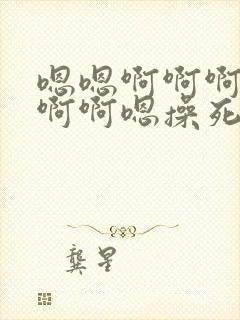 嗯嗯啊啊啊
啊啊嗯操死
龚星